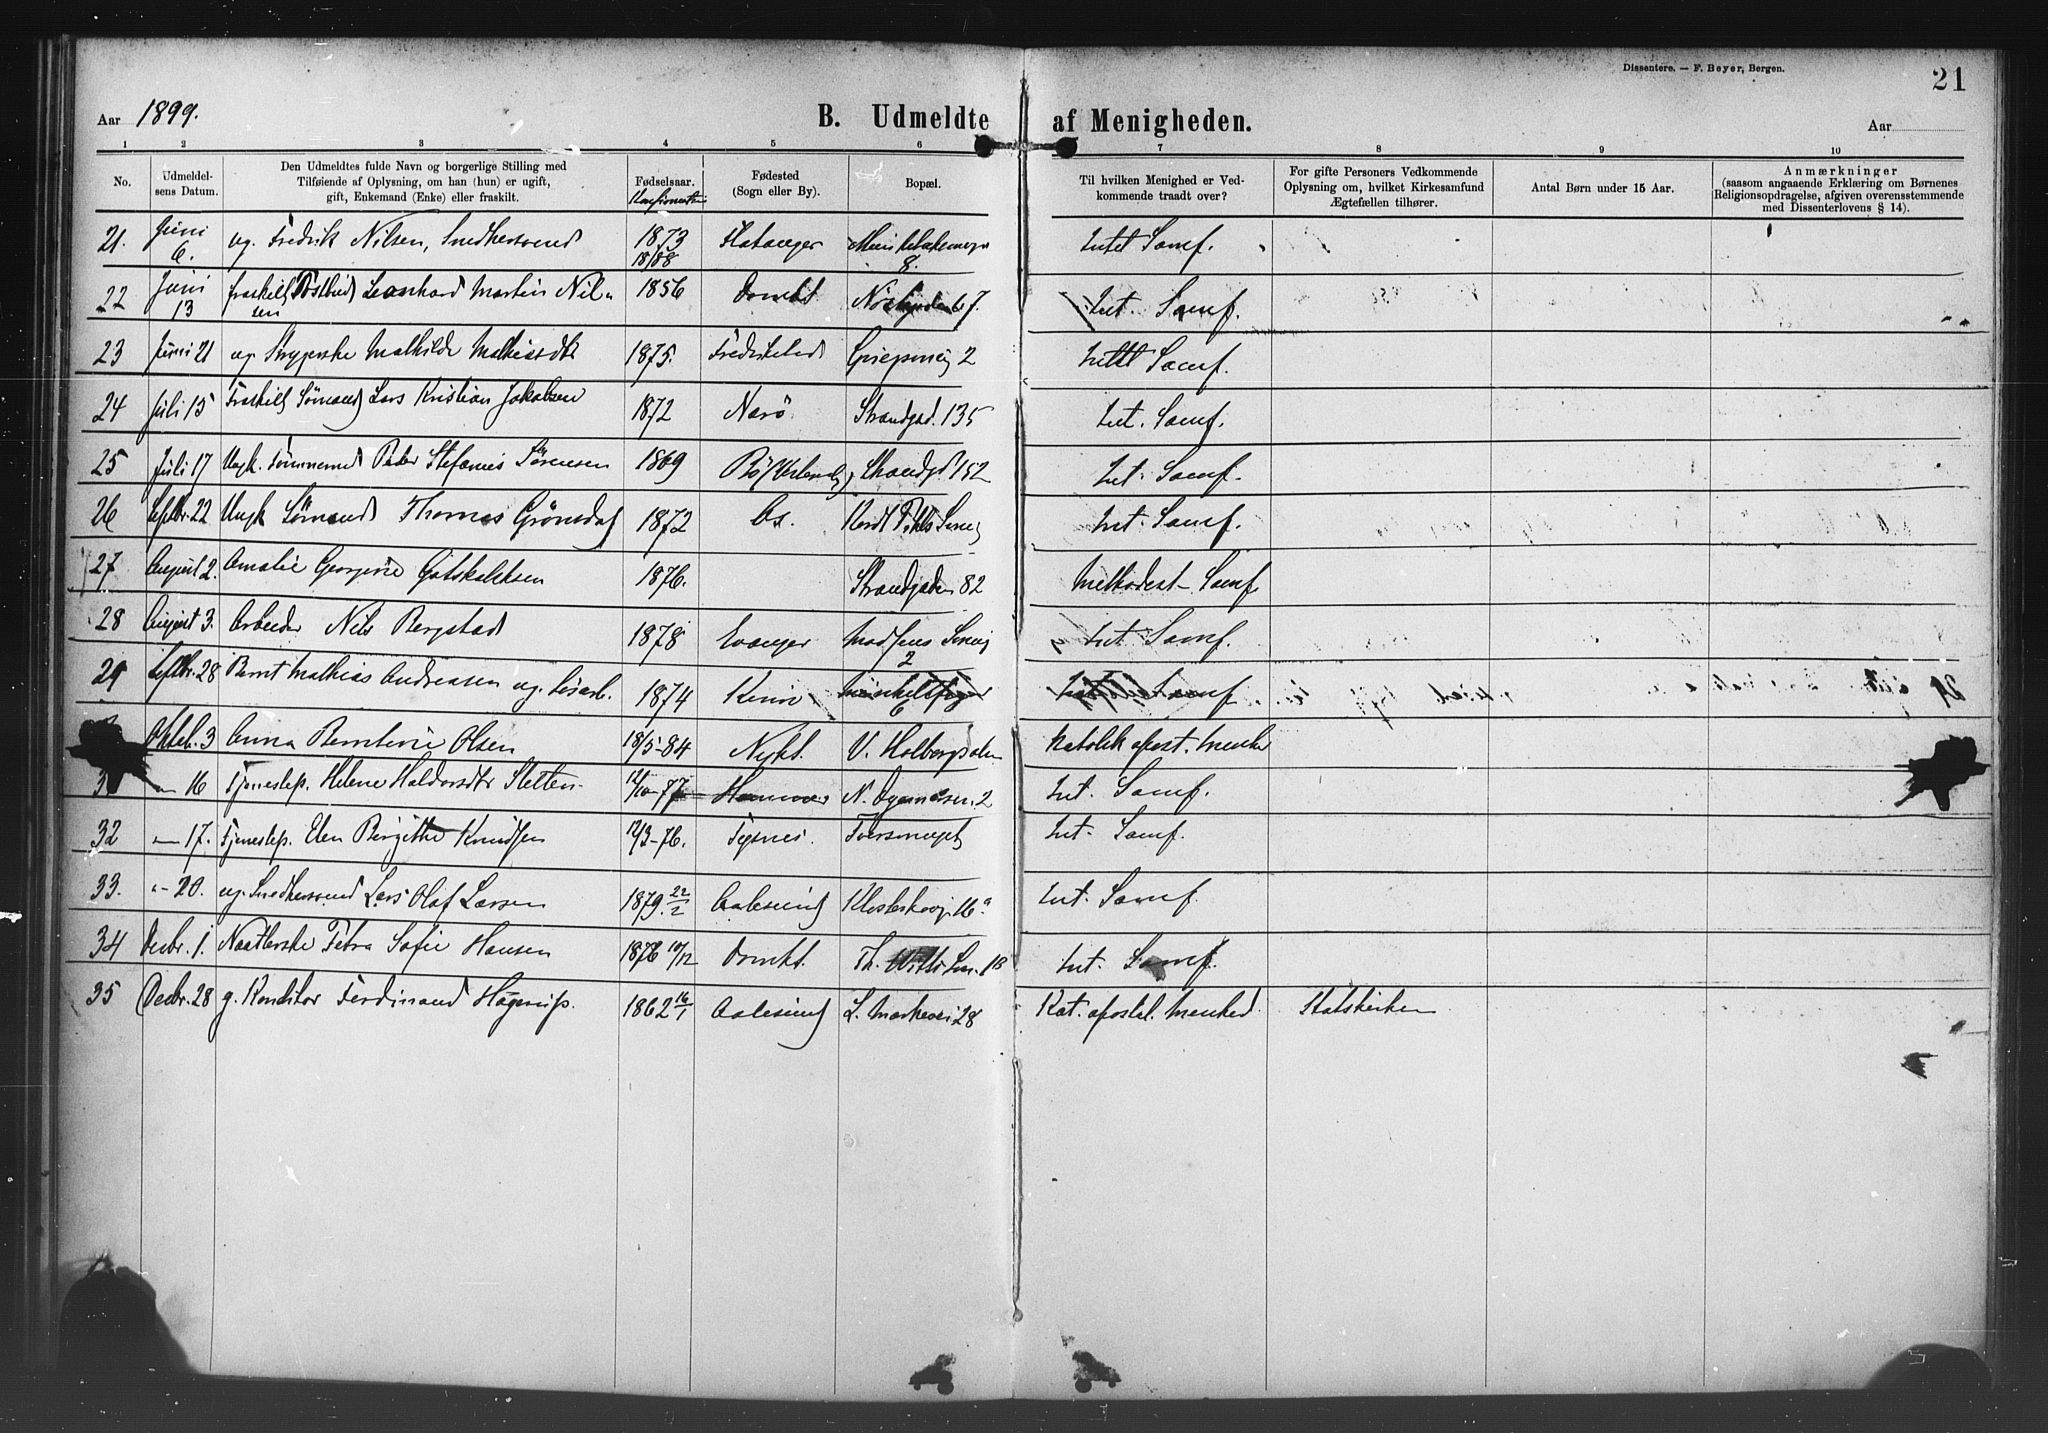 Dissentere. — F. Beyer, Bergen.
21
Aar 1899.
B. Udmeldte af Menigheden.
Aar
1 2 3 4 5 6 7 8 9 10
No.
Udmeldel-
sens Datum.
Den Udmeldtes fulde Navn og borgerlige Stilling med
Tilføiende af Oplysning, om han (hun) er ugift,
gift, Enkemand (Enke) eller fraskilt.
Fødselsaar.
Fødested
(Sogn eller By).
Bopæl.
Til hvilken Menighed er Ved-
kommende traadt over?
For gifte Personers Vedkommende
Oplysning om, hvilket Kirkesamfund
Ægtefællen tilhører.
Antal Børn under 15 Aar.
Anmærkninger
(saasom angaaende Erklæring om Børnenes
Religionsopdragelse, afgiven overensstemmende
med Dissenterlovens § 14).
21. Juni 6. ug. Fredrik Nilsen, Snedkersvend 1873 18/88 8. Intet Samf.
22 Juni 13 fraskilt Leonhard Martin Nil-
sen 1856 Domk. 7. Int. Samf.
23 Juni 21 ug Mathilde Mathiasdtr 1875. Fredrikstad 2 Intet Samf.
24 Juli 15 Fraskilt Sømand Lars Kristian Jakobsen 1872 Narö Strandgad. 135 Int. Samf.
25 Juli 17 Ungk. Tømmermd Peder Stefanus Sörensen 1869 Strandgd 152 Int. Samf.
26 Septbr. 22 Ungk Sömand Thomas Grönsdal 1872 Os. Int. Samf.
27 August 2. Amalie Georgine Gotskalksen 1876. Strandgaden 82 Methodist-Samf.
28 August 3. Arbeider Nils Bergstad 1878 Evanger Madsens Smug
2 Int. Samf.
29 Septbr. 28 Bernt Mathias Andreasen ug. 1874 Kinn Int. Samf.
Oktbr. 3 Anna Berntine Olsen 18/5-84 Nykt. V. Holbergsalm Katolik apost. Menhe
3 — 16 Tjenestep. Helene Haldorsdtr Sletten 12/10-77 Hammer 2 Int. Samf.
32 — 17. Tjenestep. Elen Birgitte Knudsen 12/3-76. Tysnes. Int. Samf.
33. -"- 20. ug. Snedkersvend Lars Olaf Larsen 1879. 22/2 Aalesund Int. Samf.
34 Decbr. 1. Petra Sofie Hansen 1876 10/12 Domk. Int. Samf.
35 Decbr. 28 g. Konditor Ferdinand Hagerup. 1862 16/1 Aalesund L. Markevei 28 Kat. apostol. Menhed. Statskirken